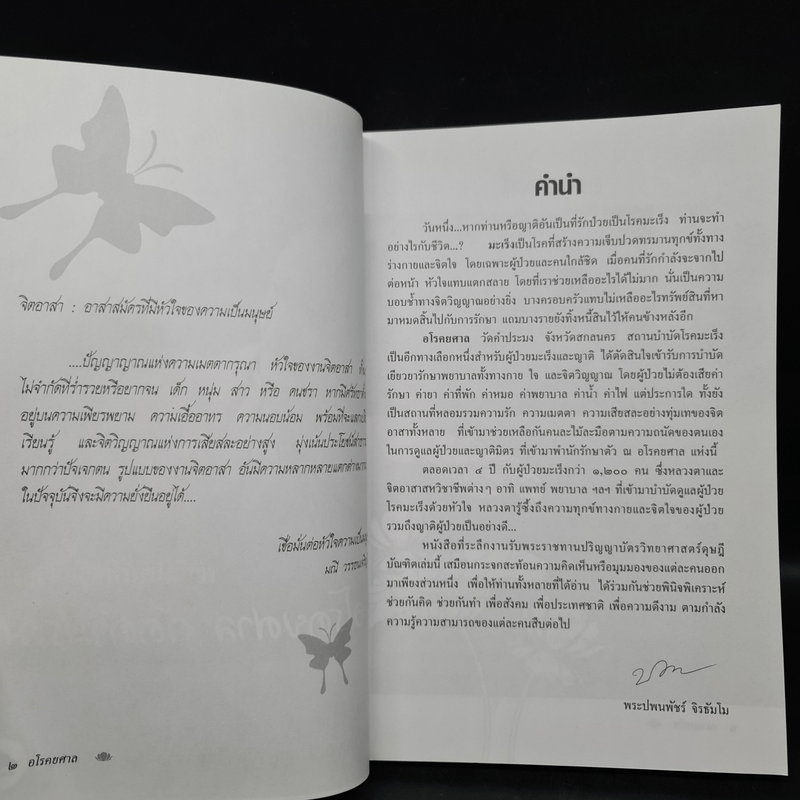 จิตอาสา : อาสาสมัครที่มีหัวใจของความเป็นมนุษย์
....ปัญญาญาณแห่งความเมตตากรุณา หัวใจของงานจิตอาสา
ไม่จำกัดที่ร่ำรวยหรือยากจน เด็ก หนุ่ม สาว หรือ คนชรา
อยู่บนความเพียรพยาม ความเอื้ออาทร ความนอบน้อม
เรียนรู้ และจิตวิญญาณแห่งการเสียสละอย่างสูง
มากกว่าปัจเจกตน รูปแบบของงานจิตอาสา อันมีความหลากหลาย
ในปัจจุบันจึงจะมีความยั่งยืนอยู่ได้....
เชื่อมั่นต่อหัวใจความเป็น
มณี
๒ อโรคยศาล
คำนำ
วันหนึ่ง...หากท่านหรือญาติอันเป็นที่รักป่วยเป็นโรคมะเร็ง ท่านจะทำ
อย่างไรกับชีวิต...? มะเร็งเป็นโรคที่สร้างความเจ็บปวดทรมานทุกข์ทั้งทาง
ร่างกายและจิตใจ โดยเฉพาะผู้ป่วยและคนใกล้ชิด เมื่อคนที่รักกำลังจะจากไป
ต่อหน้า หัวใจแทบแตกสลาย โดยที่เราช่วยเหลืออะไรได้ไม่มาก นั่นเป็นความ
บอบช้ำทางจิตวิญญาณอย่างยิ่ง บางครอบครัวแทบไม่เหลืออะไรทรัพย์สินที่หา
มาหมดสิ้นไปกับการรักษา แถมบางรายยังทิ้งหนี้สินไว้ให้คนข้างหลังอีก
อโรคยศาล วัดคำประมง จังหวัดสกลนคร สถานบำบัดโรคมะเร็ง
เป็นอีกทางเลือกหนึ่งสำหรับผู้ป่วยมะเร็งและญาติ ได้ตัดสินใจเข้ารับการบำบัด
เยียวยารักษาพยาบาลทั้งทางกาย ใจ และจิตวิญญาณ โดยผู้ป่วยไม่ต้องเสียค่า
รักษา ค่ายา ค่าที่พัก ค่าหมอ ค่าพยาบาล ค่าน้ำ ค่าไฟ แต่ประการใด ทั้งยัง
เป็นสถานที่หลอมรวมความรัก ความเมตตา ความเสียสละอย่างทุ่มเทของจิต
อาสาทั้งหลาย ที่เข้ามาช่วยเหลือกันคนละไม้ละมือตามความถนัดของตนเอง
ในการดูแลผู้ป่วยและญาติมิตร ที่เข้ามาพำนักรักษาตัว ณ อโรคยศาล แห่งนี้
ตลอดเวลา ๔ ปี กับผู้ป่วยมะเร็งกว่า ๑,๒๐๐ คน ซึ่งหลวงตาและ
จิตอาสาสหวิชาชีพต่างๆ อาทิ แพทย์ พยาบาล ฯลฯ ที่เข้ามาบำบัดดูแลผู้ป่วย
โรคมะเร็งด้วยหัวใจ หลวงตารู้ซึ้งถึงความทุกข์ทางกายและจิตใจของผู้ป่วย
รวมถึงญาติผู้ป่วยเป็นอย่างดี...
หนังสือที่ระลึกงานรับพระราชทานปริญญาบัตรวิทยาศาสตร์ดุษฎี
บัณฑิตเล่มนี้ เสมือนกระจกสะท้อนความคิดเห็นหรือมุมมองของแต่ละคนออก
มาเพียงส่วนหนึ่ง เพื่อให้ท่านทั้งหลายที่ได้อ่าน ได้ร่วมกันช่วยพินิจพิเคราะห์
ช่วยกันคิด ช่วยกันทำ เพื่อสังคม เพื่อประเทศชาติ เพื่อความดีงาม ตามกำลัง
ความรู้ความสามารถของแต่ละคนสืบต่อไป
พระปพนพัชร์ จิรธัมโม